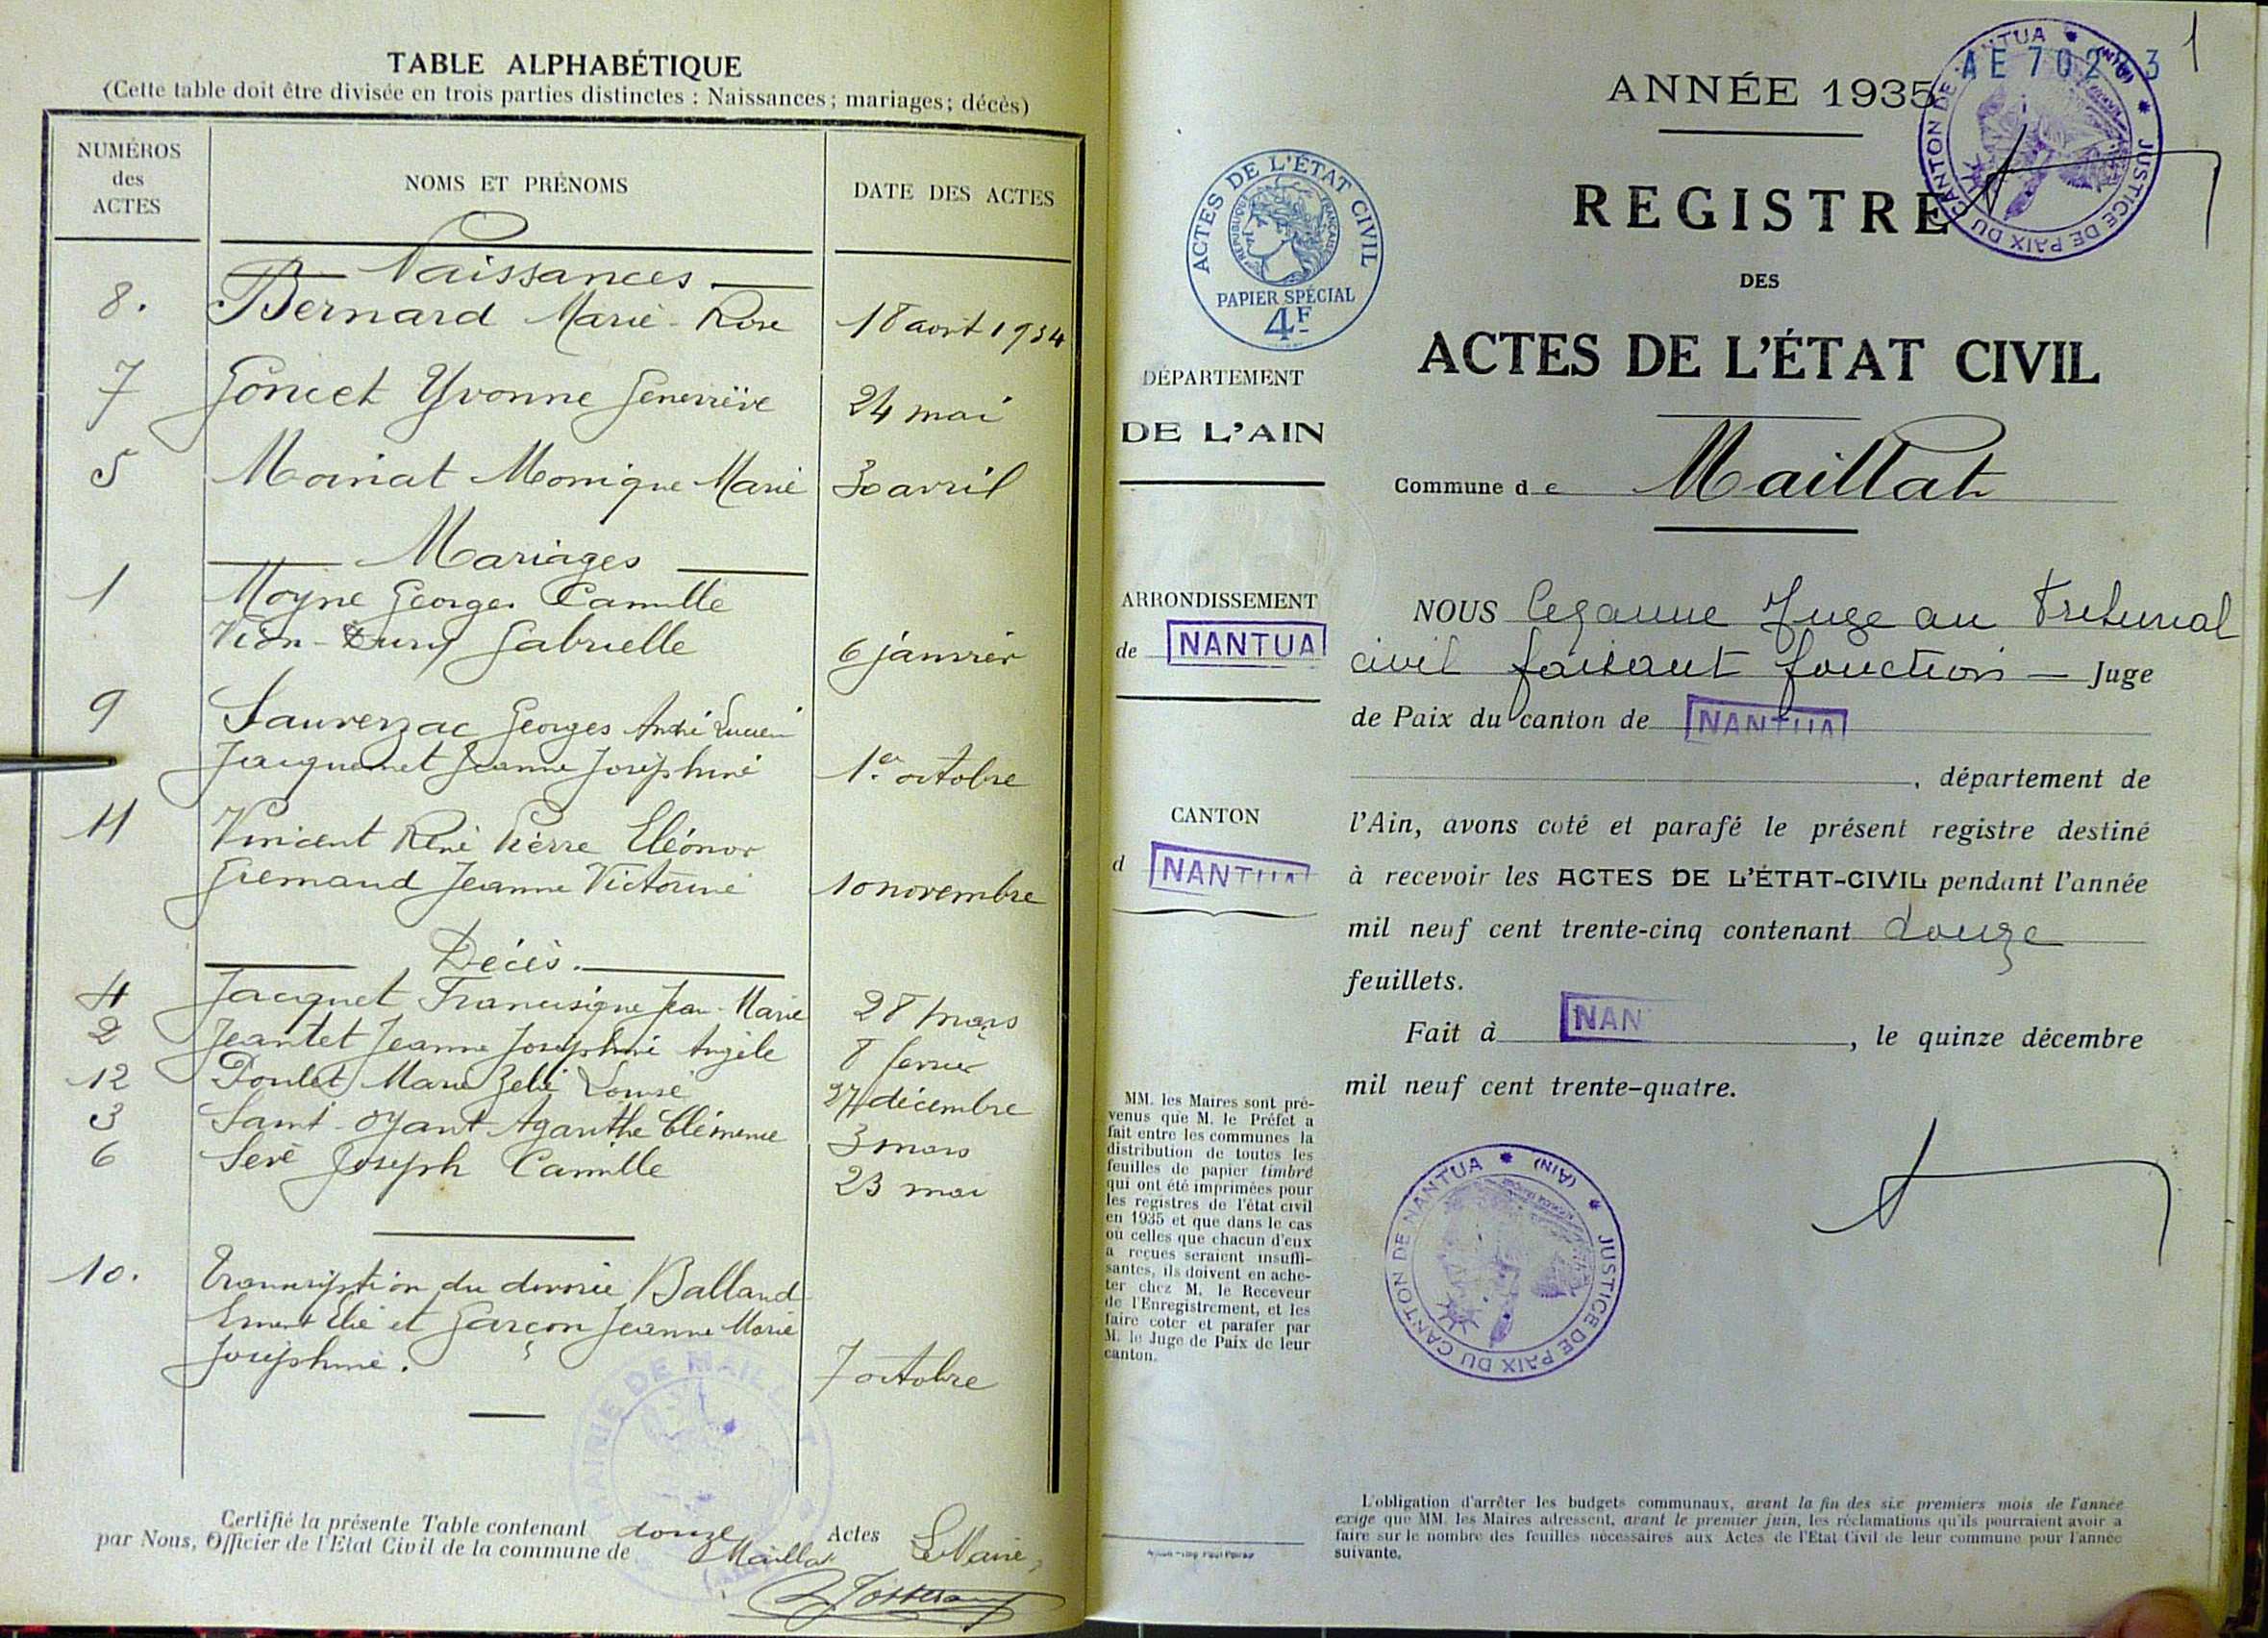 TABLE ALPHABÉTIQUE
(Cette table doit être divisée en trois parties distinctes : Naissances ; mariages ; décès)
NUMÉROS des ACTES
NOMS ET PRÉNOMS
DATE DES ACTES
Naissances
8. Bernard Marie-Rose 18 août 1934
7 Goncet Yvonne Geneviève 24 mai
5 Moiriat Monique Marie 30 avril
Mariages
1 Moyne Georges Camille
Vion-Dury Gabrielle 6 janvier
9 Sauverzac Georges André Lucien
Jacquemet Jeanne Joséphine 1er octobre
11 Vincent René Pierre Eléonor
Gremaud Jeanne Victorine 10 novembre
Décès.
4 Jacquet Francisque Jean-Marie 28 mars
2 Jeantet Jeanne Joséphine Angèle 8 février
12 Poulet Marie Zélie Louise 27 décembre
3 Saint-Oyant Aganthe Clémence 3 mars
6 Sève Joseph Camille 23 mai
10. Transcription du divorce Balland
Ernest Elie et Garçon Jeanne Marie
Joséphine. 7 octobre
MAIRIE DE MAILLAT
Certifié la présente Table contenant douze Actes
par Nous, Officier de l'Etat Civil de la commune de Maillat
Le Maire,
1
AE 702 3
ANNÉE 1935
JUSTICE DE PAIX DU CANTON DE NANTUA (AIN)
REGISTRE
DES
ACTES DE L'ÉTAT CIVIL
ACTES DE L'ÉTAT CIVIL
RÉPUBLIQUE FRANÇAISE
PAPIER SPÉCIAL
4F
DÉPARTEMENT
DE L'AIN
Commune de Maillat
ARRONDISSEMENT
de NANTUA
CANTON
d NANTUA
NOUS Juge au Tribunal
civil faisant fonction — Juge
de Paix du canton de NANTUA
, département de
l'Ain, avons coté et parafé le présent registre destiné
à recevoir les ACTES DE L'ÉTAT-CIVIL pendant l'année
mil neuf cent trente-cinq contenant douze
feuillets.
Fait à NAN , le quinze décembre
mil neuf cent trente-quatre.
MM. les Maires sont pré-
venus que M. le Préfet a
fait entre les communes la
distribution de toutes les
feuilles de papier timbré
qui ont été imprimées pour
les registres de l'état civil
en 1935 et que dans le cas
où celles que chacun d'eux
a reçues seraient insuffi-
santes, ils doivent en ache-
ter chez M. le Receveur
de l'Enregistrement, et les
faire coter et parafer par
M. le Juge de Paix de leur
canton.
JUSTICE DE PAIX DU CANTON DE NANTUA (AIN)
L'obligation d'arrêter les budgets communaux, avant la fin des six premiers mois de l'année
exige que MM. les Maires adressent, avant le premier juin, les réclamations qu'ils pourraient avoir à
faire sur le nombre des feuilles nécessaires aux Actes de l'Etat Civil de leur commune pour l'année
suivante.